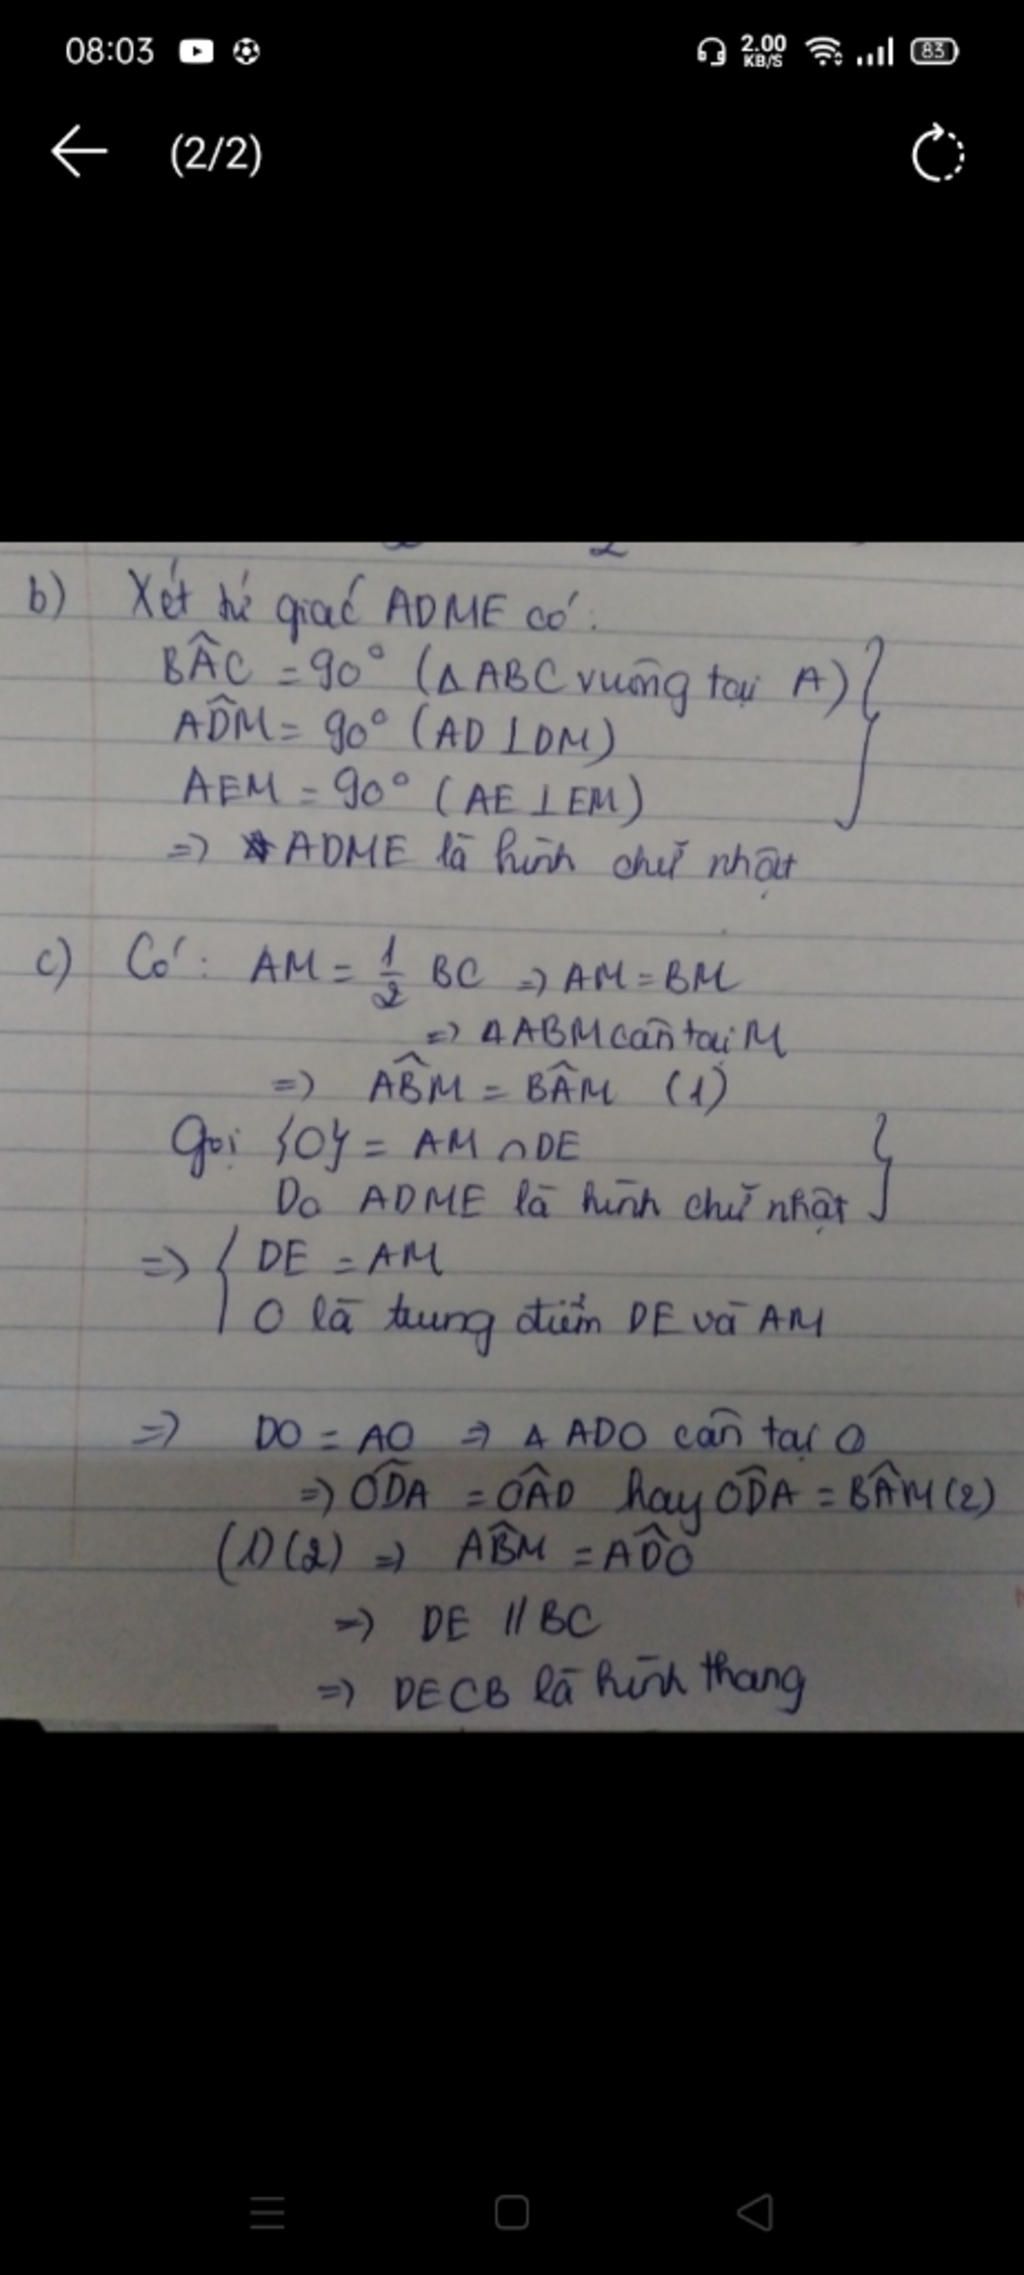 08:03
2.00 KB/S
83
(2/2)
b) Xét tứ giác ADME có:
BÂC = 90° (△ABC vuông tại A)
AD̂M = 90° (AD ⊥ DM)
AEM = 90° (AE ⊥ EM)
=> ADME là hình chữ nhật
c) Có: AM = 1/2 BC => AM = BM
=> △ABM cân tại M
=> AB̂M = BÂM (1)
Gọi {O} = AM ∩ DE
Do ADME là hình chữ nhật
=> { DE = AM
O là trung điểm DE và AM
=> DO = AO => △ ADO cân tại O
=> OD̂A = OÂD hay OD̂A = BÂM (2)
(1)(2) => AB̂M = AD̂O
=> DE // BC
=> DECB là hình thang